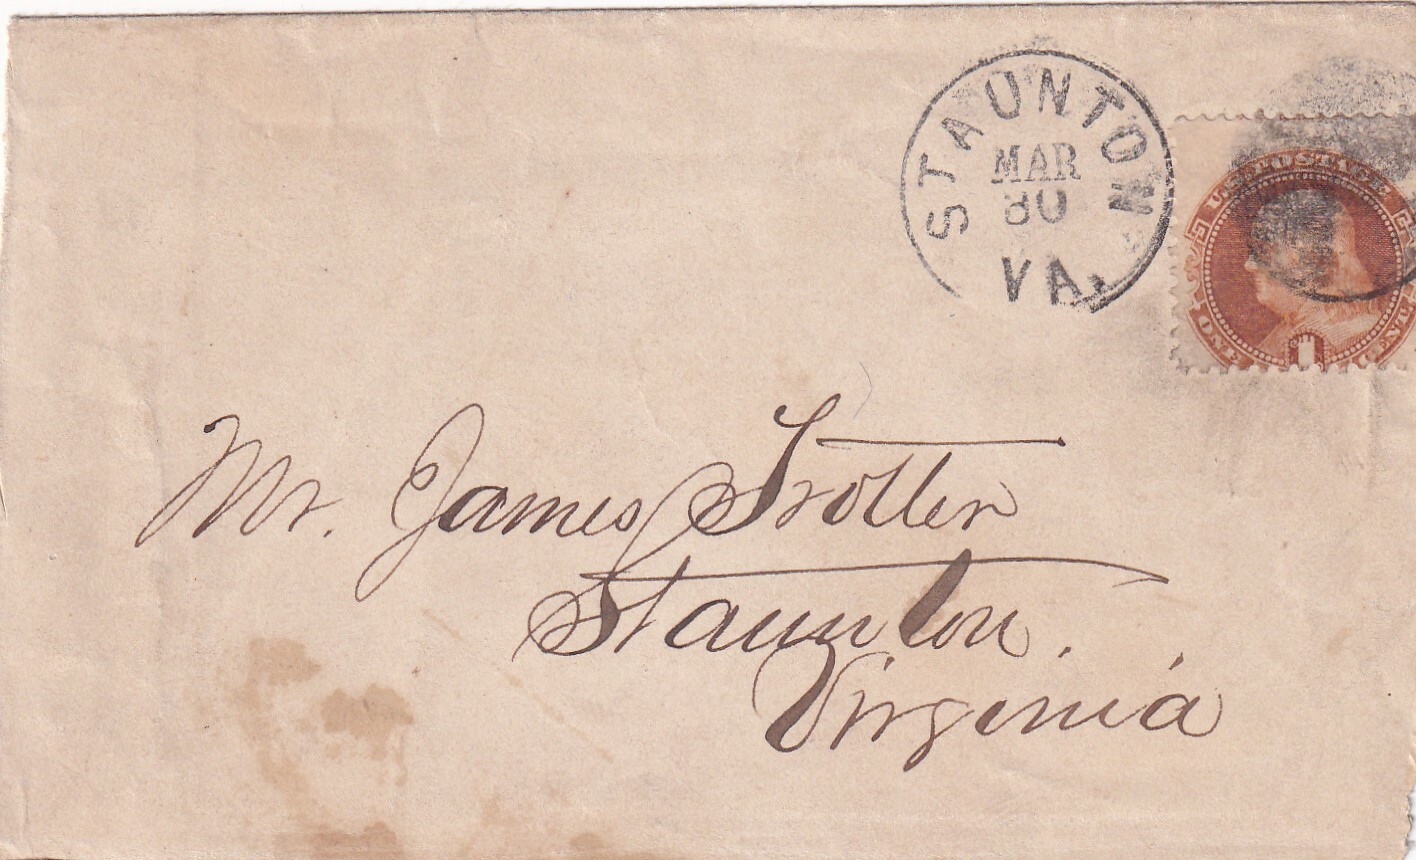 STAUNTON
MAR
30
VA.
U.S. POSTAGE
ONE 1 CENT
Mr. James Trotter
Staunton.
Virginia